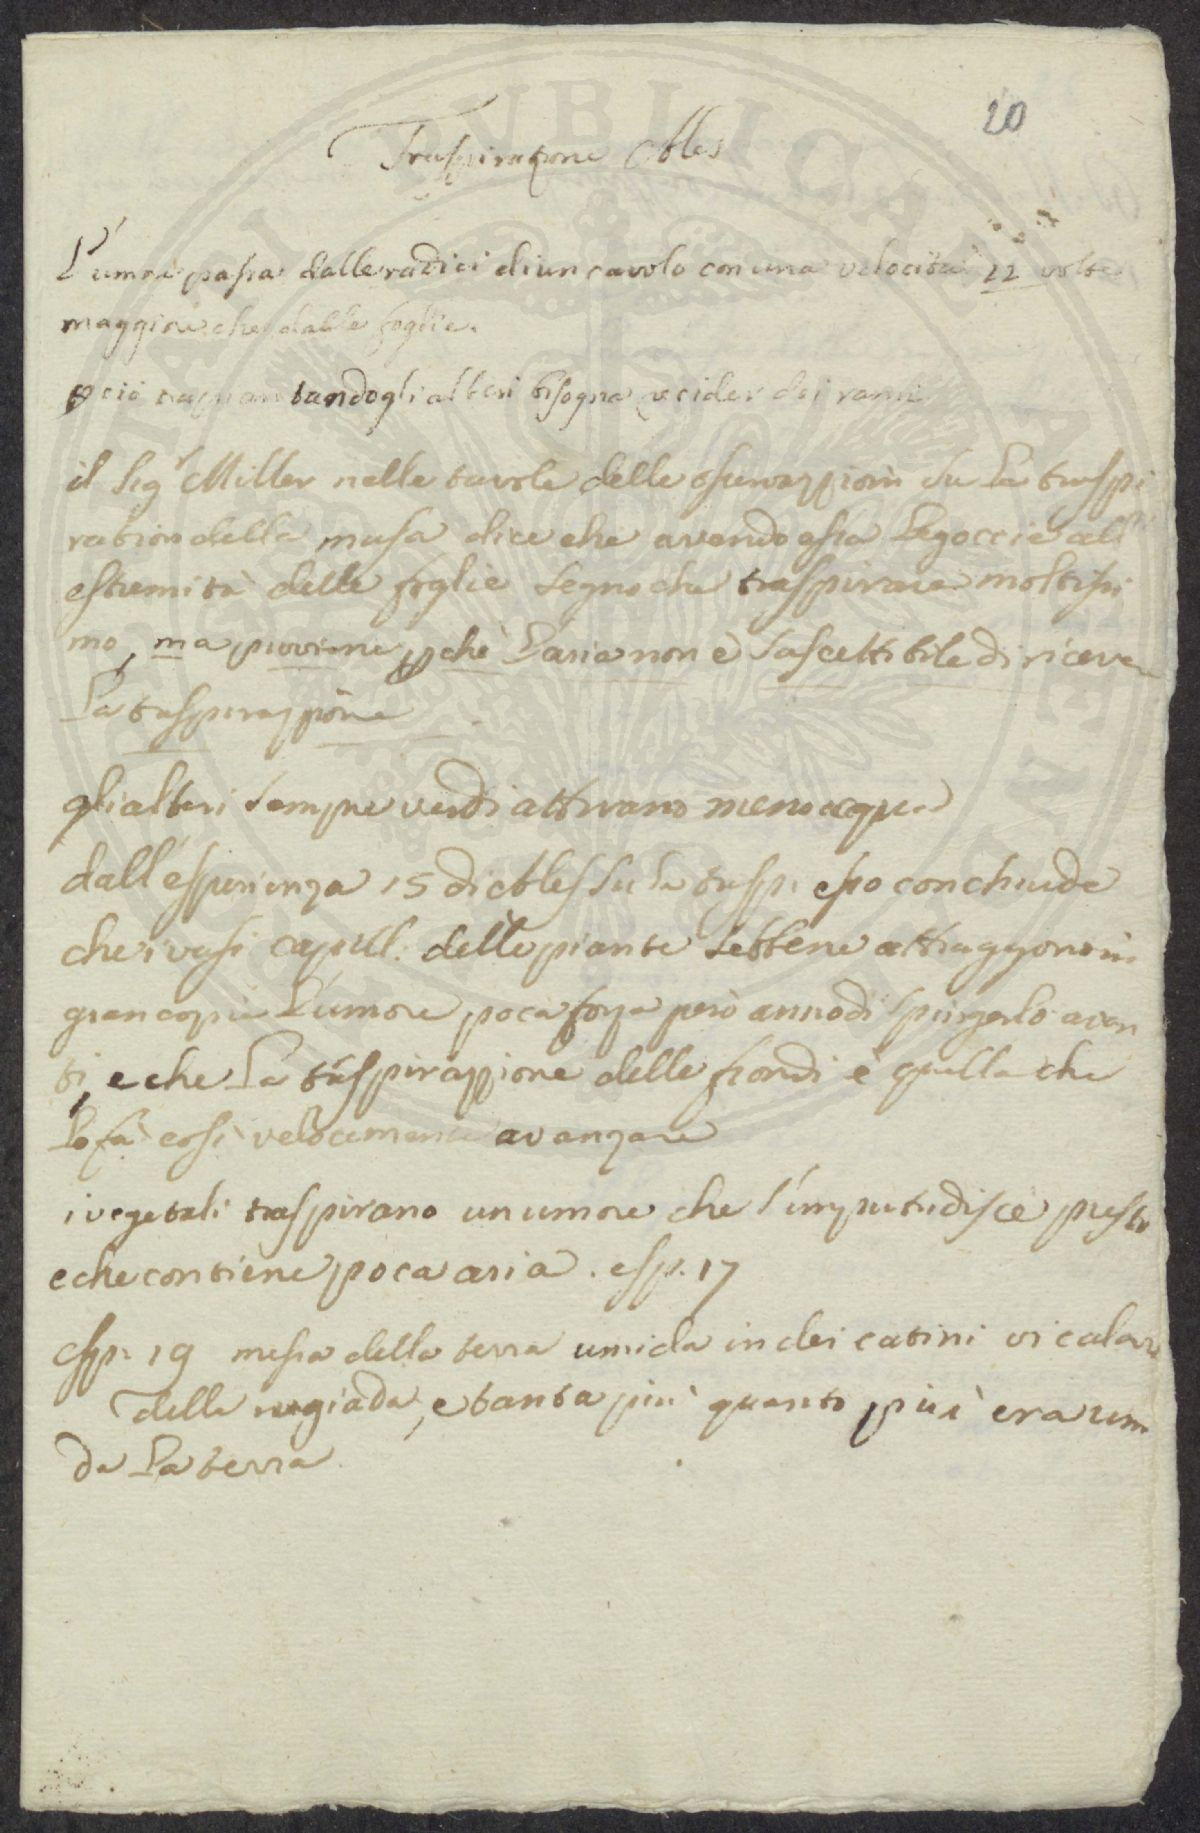 20
Traspirazione Ales
L'umore passa dalle radici di un cavolo con una velocità 11 volte
maggiore che dalle foglie.
p ciò trapiantando gli alberi bisogna recider dei rami
il Sig.r Miller nelle tavole delle osservazzioni su La traspi
ration della musa dice che avendo essa Le goccie all
estremità delle foglie segno che traspirava moltissi
mo, ma piovenne pchè L'aria non è suscettibile di riceve
La traspirazzione
gli alberi sempre verdi attirano meno acqua
dall'esperienza 15 di Ales su la trasp. esso conchiude
che i vasi capill. delle piante sebbene attraggono in
gran copia L'umore poca forza però anno di spingerlo avan
ti, e che La traspirazzione delle frondi è quella che
Lo fà così velocemente avanzare
i vegetali traspirano un umore che s'imputridisce presto
e che contiene poca aria. esp. 17
Esp. 19 messa della terra umida in dei catini vi calava
della rugiada, e tanta più quanto più era umi
da La terra